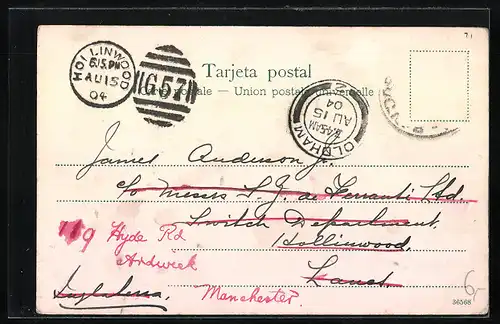 HOLLINWOOD
6.15.PM
AU 15
04
G57
OLDHAM
AU 15
04
Tarjeta postal
Carte postale — Union postale universelle
James Anderson Jr.
c/o Messrs S. Z. de Ferranti Ltd.
Switch Department,
Hollinwood,
Lancs
Inglaterra.
119 Hyde Rd
Ardwick
Manchester.
36568
6,-